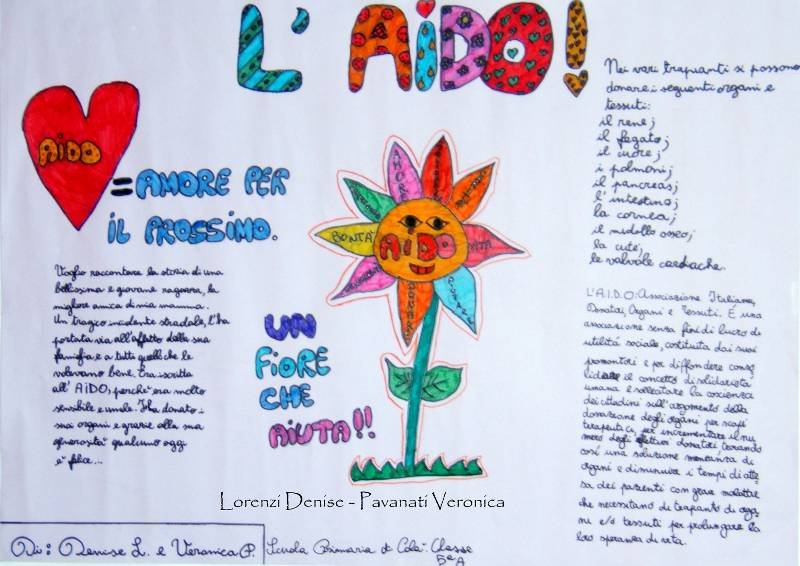 L'AIDO!
AIDO
= AMORE PER
IL PROSSIMO.
Voglio raccontare la storia di una
bellissima e giovane ragazza, la
migliore amica di mia mamma.
Un tragico incidente stradale, l'ha
portata via all'affetto della sua
famiglia e a tutti quelli che le
volevano bene. Era iscritta
all' AIDO, perchè era molto
sensibile e umile. Ha donato i
suoi organi e grazie alla sua
generosità qualcuno oggi
è felice...
AMORE
BONTÀ
AIDO
VITA
DONARE
UN
FIORE
CHE
AIUTA!!
Nei vari trapianti si possono
donare i seguenti organi e
tessuti:
il rene;
il fegato;
il cuore;
i polmoni;
il pancreas;
l'intestino;
la cornea;
il midollo osseo;
la cute;
le valvole cardiache.
L'A.I.D.O: Associazione Italiana,
Donatori, Organi e Tessuti. È una
associazione senza fini di lucro di
utilità sociale, costituita dai suoi
promotori e per diffondere conso
lidare il concetto di solidarietà
umana e sollecitare la coscienza
dei cittadini sull'argomento della
donazione degli organi per scopi
terapeutici, per incrementare il nu
mero degli effettivi donatori, trovando
così una soluzione mancanza di
organi e diminuire i tempi di atte
sa dei pazienti con gravi malattie
che necessitano di trapianto di orga
ni e/o tessuti per prolungare la
loro speranza di vita.
Lorenzi Denise - Pavanati Veronica
Di: Denise L. e Veronica P.
Scuola Primaria di Colà. Classe
5ªA